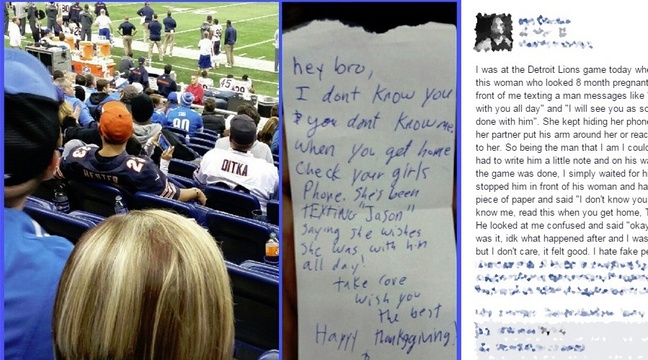 HESTER
23
DITKA
20
hey bro,
I dont know you
& you dont know me,
When you get home
Check your girls
Phone. She's been
TEXTING "Jason"
Saying she wishes
She was with him
all day!
take care
wish you
the best
Happy thanksgiving!
I was at the Detroit Lions game today
this woman who looked 8 month pregnant
front of me texting a man messages like
with you all day" and "I will see you as
done with him". She kept hiding her
her partner put his arm around her or
to her. So being the man that I am I
had to write him a little note and on his
the game was done, I simply waited for
stopped him in front of his woman and
piece of paper and said "I don't know you
know me, read this when you get home,
He looked at me confused and said "okay
was it, idk what happened after and I was
but I don't care, it felt good. I hate fake